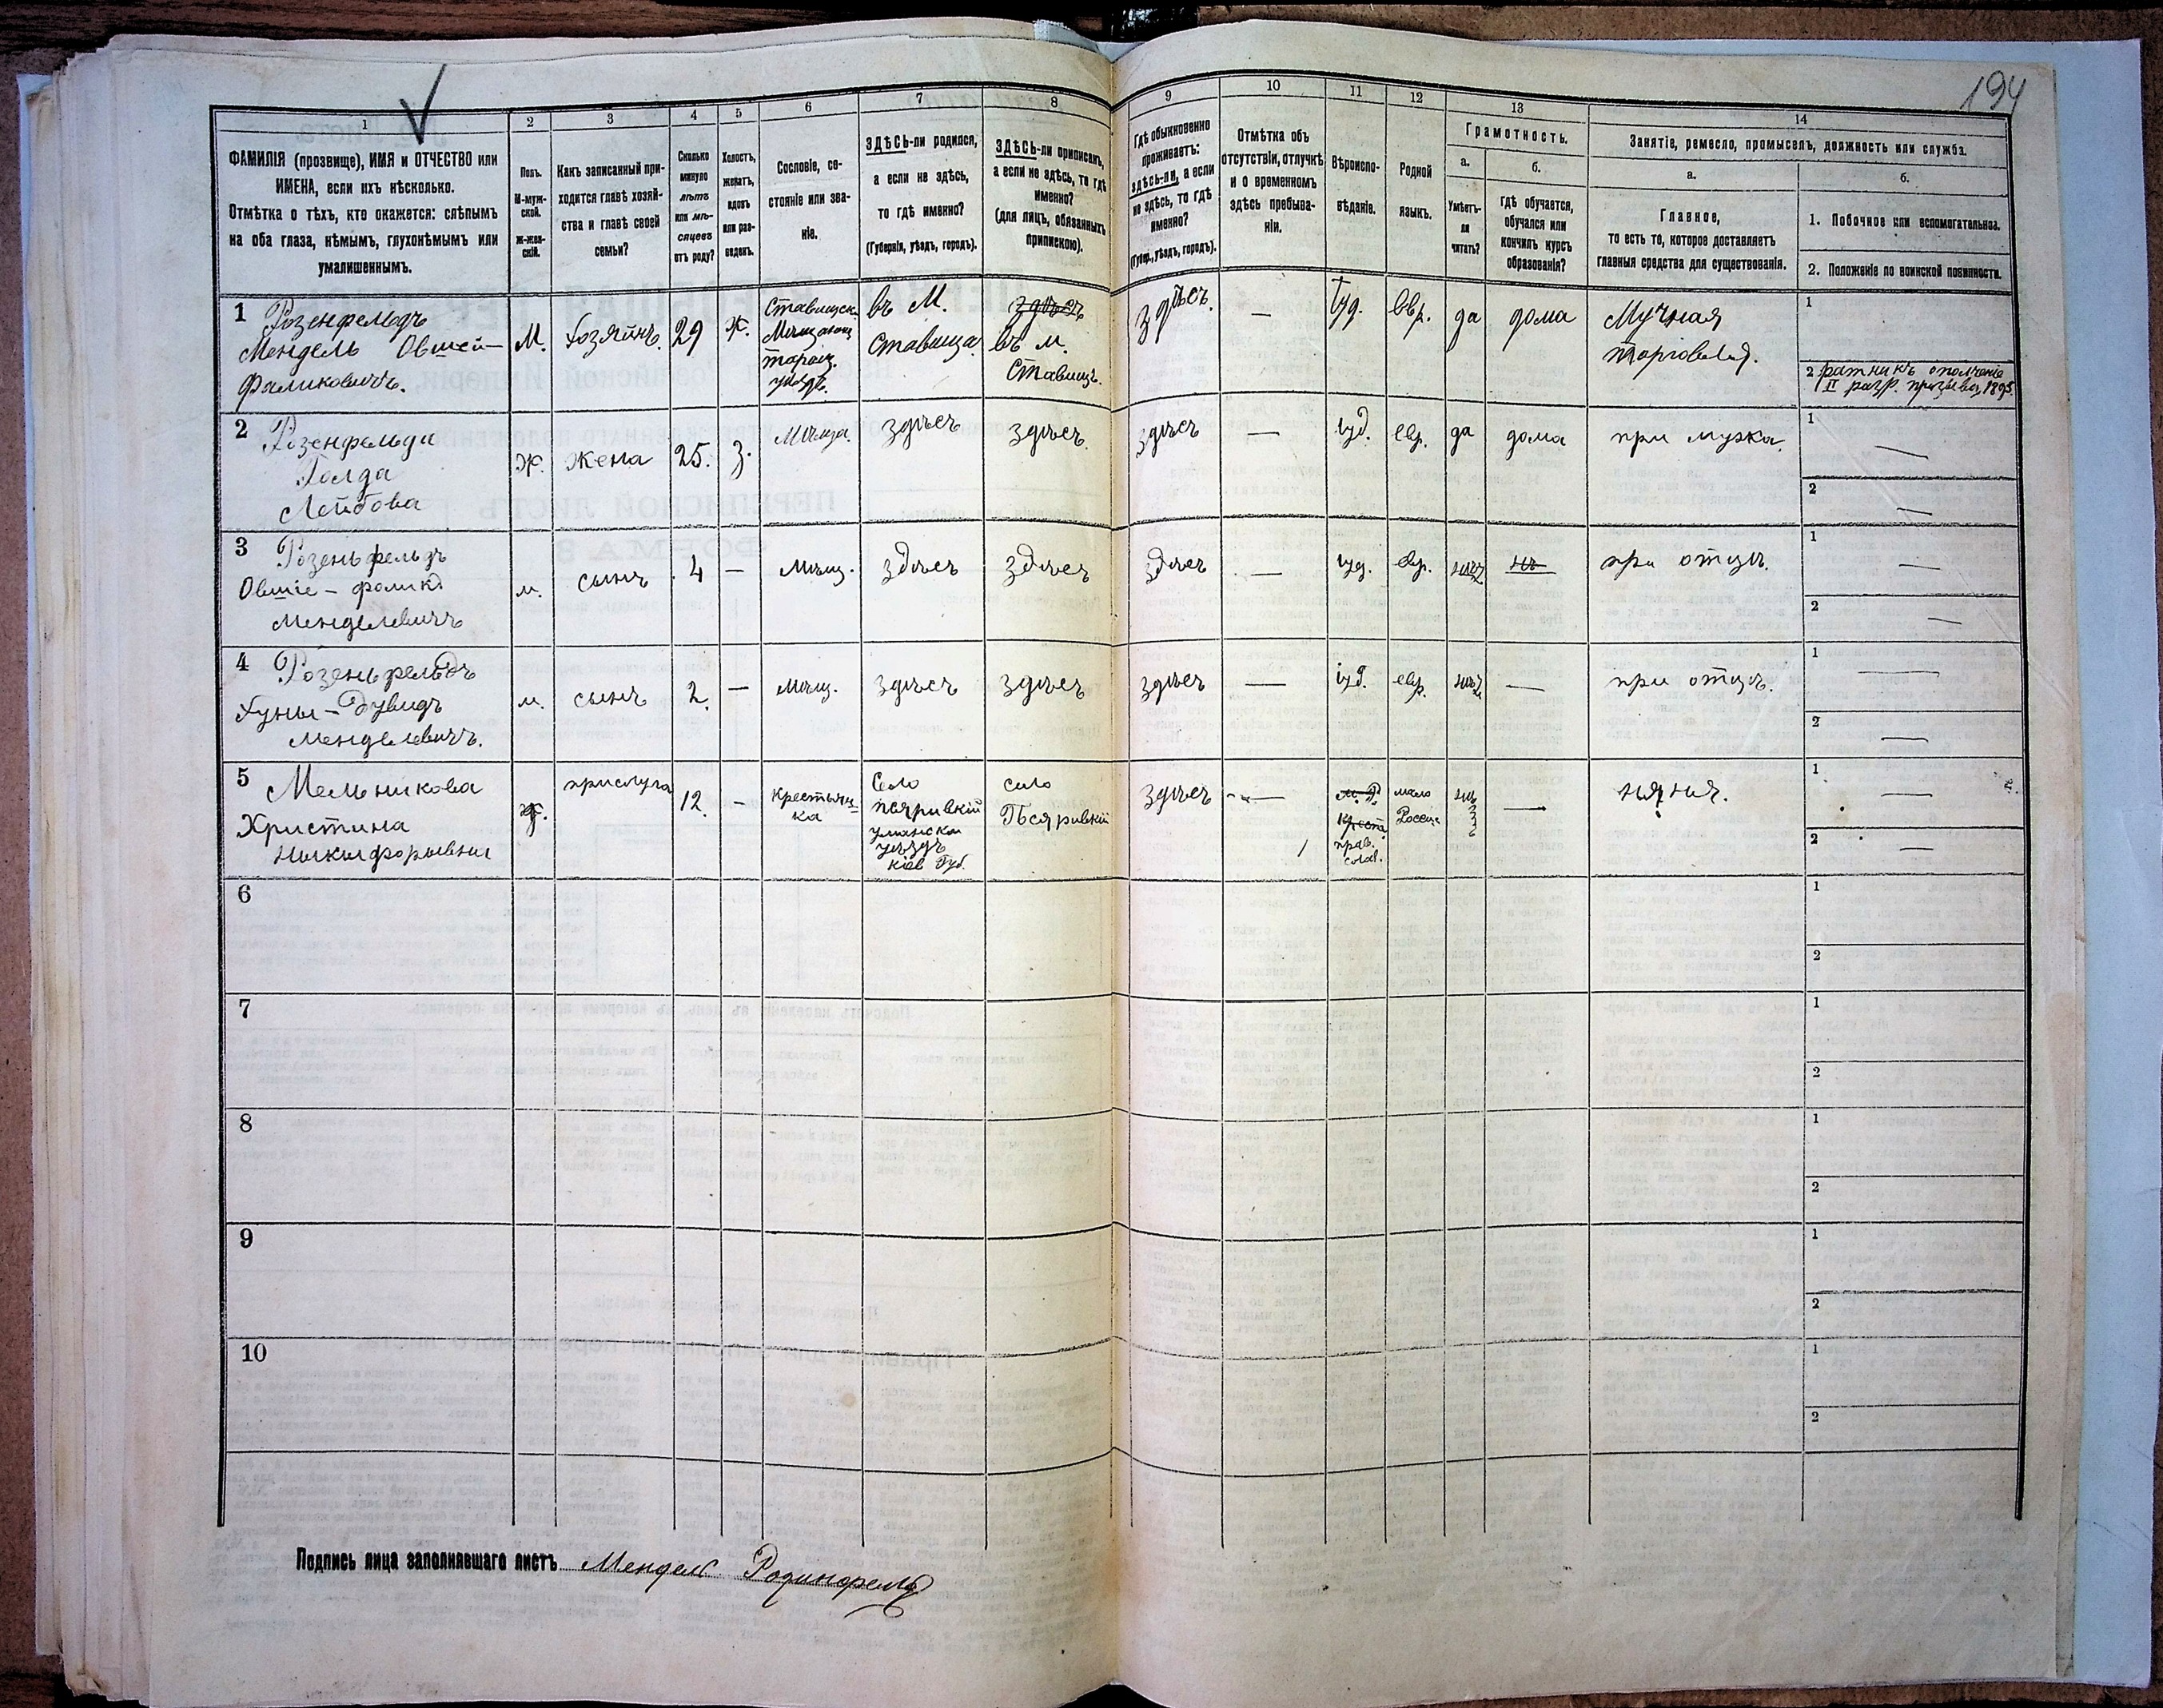 194
1
ФАМИЛІЯ (прозвище), ИМЯ и ОТЧЕСТВО или
ИМЕНА, если ихъ нѣсколько.
Отмѣтка о тѣхъ, кто окажется: слѣпымъ
на оба глаза, нѣмымъ, глухонѣмымъ или
умалишеннымъ.
2
Полъ.
М-муж-
ской.
Ж-жен-
скій.
3
Какъ записанный при-
ходится главѣ хозяй-
ства и главѣ своей
семьи?
4
Сколько
минуло
лѣтъ
или мѣ-
сяцевъ
отъ роду?
5
Холостъ,
женатъ,
вдовъ
или раз-
веденъ.
6
Сословіе, со-
стояніе или зва-
ніе.
7
ЗДѢСЬ-ли родился,
а если не здѣсь,
то гдѣ именно?
(Губернія, уѣздъ, городъ).
8
ЗДѢСЬ-ли приписанъ,
а если не здѣсь, то гдѣ
именно?
(для лицъ, обязанныхъ
припискою).
9
Гдѣ обыкновенно
проживаетъ:
здѣсь-ли, а если
не здѣсь, то гдѣ
именно?
(Губер., уѣздъ, городъ).
10
Отмѣтка объ
отсутствіи, отлучкѣ
и о временномъ
здѣсь пребыва-
ніи.
11
Вѣроиспо-
вѣданіе.
12
Родной
языкъ.
13
Грамотность.
а.
Умѣетъ-
ли
читать?
б.
Гдѣ обучается,
обучался или
кончилъ курсъ
образованія?
14
Занятіе, ремесло, промыселъ, должность или служба.
а.
Главное,
то есть то, которое доставляетъ
главныя средства для существованія.
б.
1. Побочное или вспомогательное.
2. Положеніе по воинской повинности.
1 Розенфельдъ
Мендель Овшей-
Фаликовичъ.
М.
Хозяинъ.
29
Ж.
въ М.
Ставища.
здѣсь
въ м.
Ставищ.
здѣсь.
—
Іуд.
Евр.
да
дома
Мучная
торговля.
1
2 ратникъ ополченіе
II разр. призыва 1895
2 Розенфельди
Голда
Лейбова
Ж.
жена
25.
З.
здѣсь
здѣсь
здѣсь
—
Іуд.
евр.
да
дома
при мужа.
1
—
2
—
3 Розеньфельдъ
Овшіе-фолика
Менделевичъ
м.
сынъ
4
—
Мѣщ.
здѣсь
здѣсь
здѣсь
—
Іуд.
евр.
при отцѣ.
1
—
2
—
4 Розеньфельдъ
Хуны-Дувидъ
Менделевичъ.
м.
сынъ
2.
—
Мѣщ.
здѣсь
здѣсь
здѣсь
—
Іуд.
евр.
—
при отцѣ.
1
—
2
—
5 Мельникова
Христина
Никифоривни
Ж.
прислуга
12
-
Крестьян-
ка
Село
уѣздъ
Кіев Губ.
село
здѣсь
—
прав.
слав.
мало
—
няня.
1
—
2
—
6
1
2
7
1
2
8
1
2
9
1
2
10
1
2
Подпись лица заполнявшаго листъ Мендел